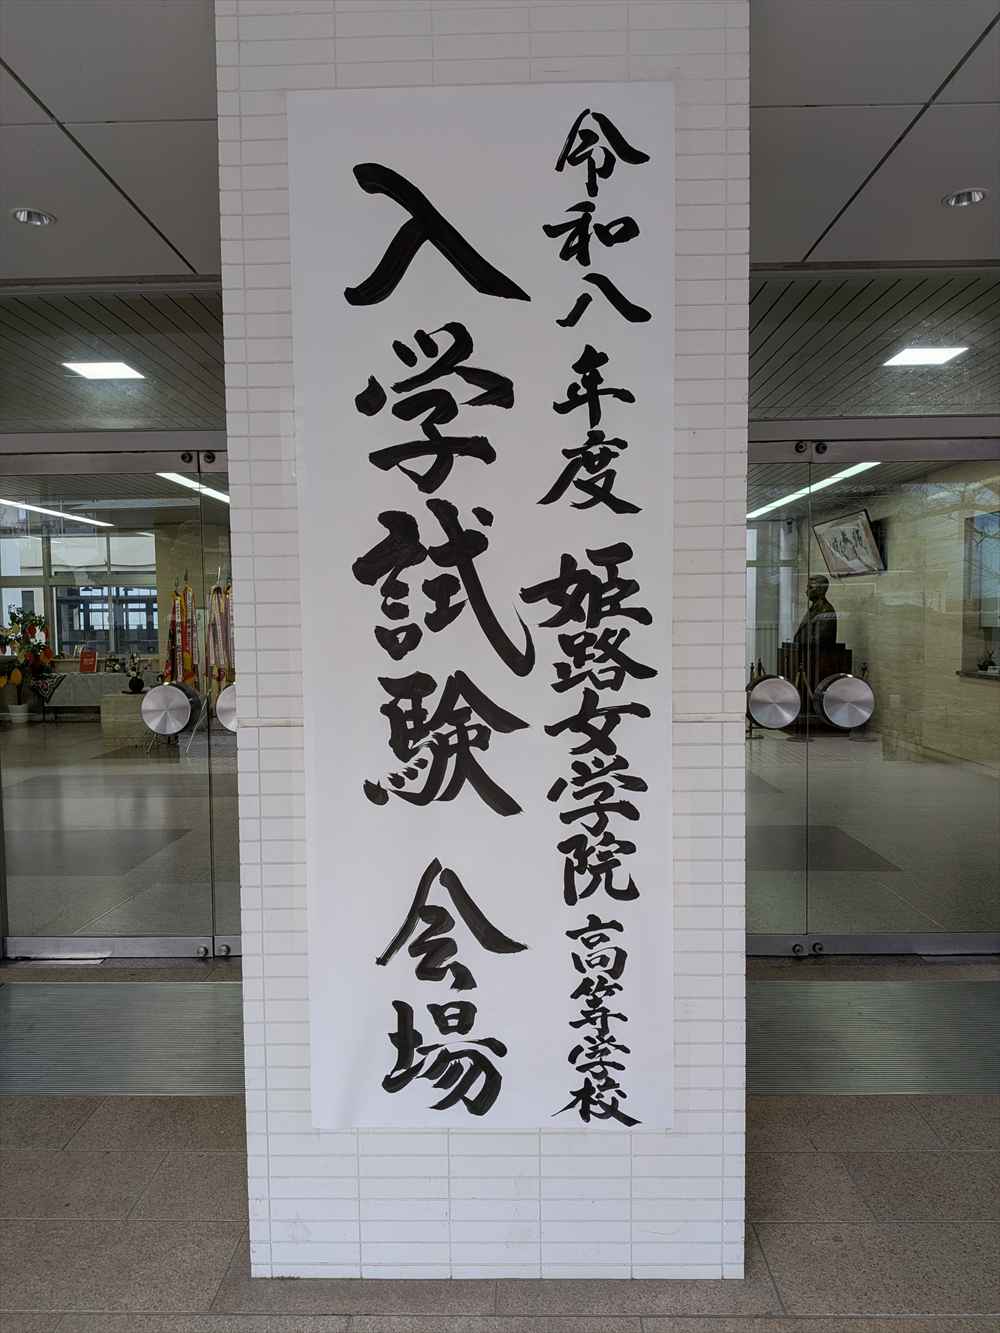 令和八年度 姫路女学院高等学校
入学試験会場